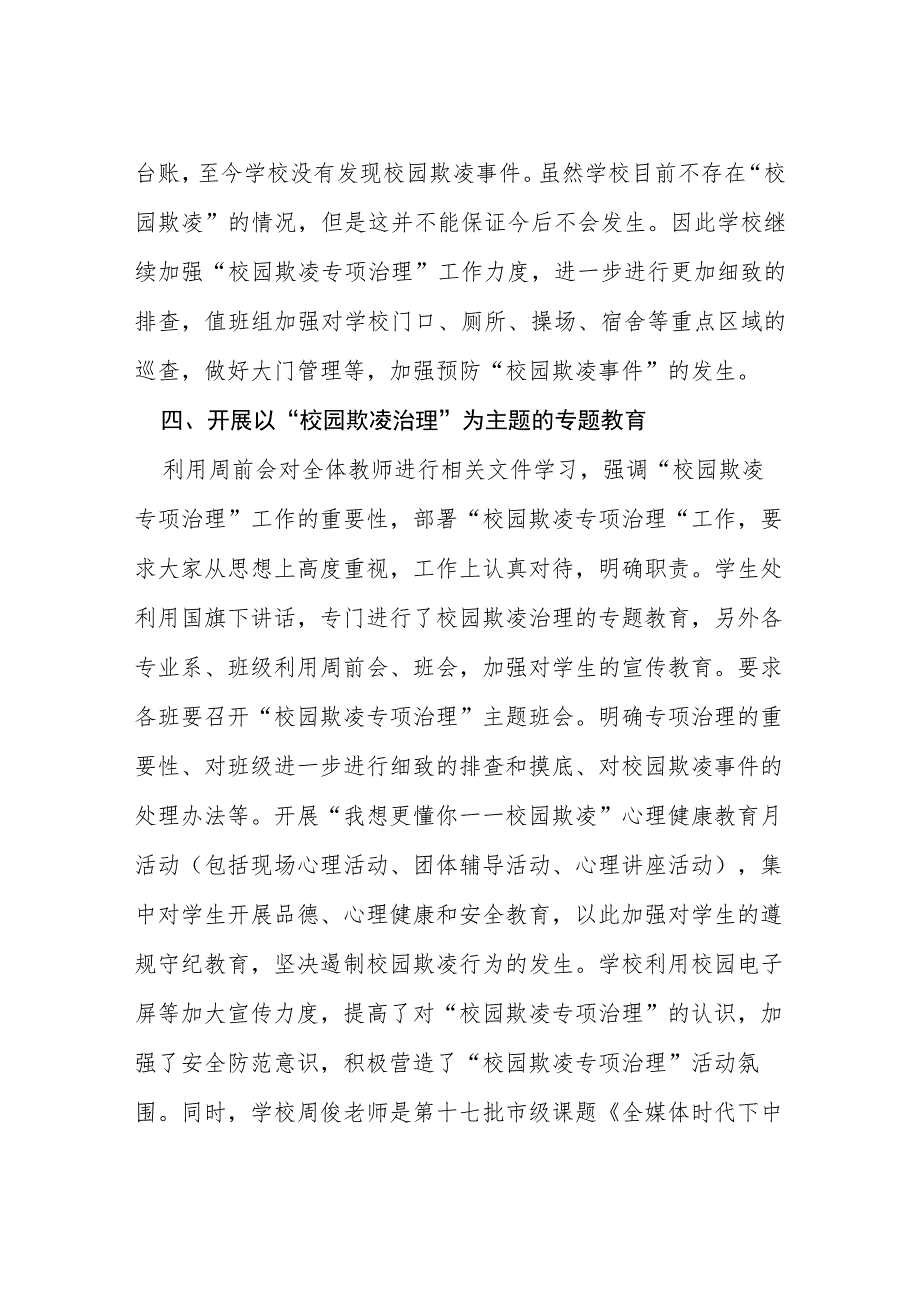 台账，至今学校没有发现校园欺凌事件。虽然学校目前不存在“校
园欺凌”的情况，但是这并不能保证今后不会发生。因此学校继
续加强“校园欺凌专项治理”工作力度，进一步进行更加细致的
排查，值班组加强对学校门口、厕所、操场、宿舍等重点区域的
巡查，做好大门管理等，加强预防“校园欺凌事件”的发生。
四、开展以“校园欺凌治理”为主题的专题教育
利用周前会对全体教师进行相关文件学习，强调“校园欺凌
专项治理”工作的重要性，部署“校园欺凌专项治理“工作，要
求大家从思想上高度重视，工作上认真对待，明确职责。学生处
利用国旗下讲话，专门进行了校园欺凌治理的专题教育，另外各
专业系、班级利用周前会、班会，加强对学生的宣传教育。要求
各班要召开“校园欺凌专项治理”主题班会。明确专项治理的重
要性、对班级进一步进行细致的排查和摸底、对校园欺凌事件的
处理办法等。开展“我想更懂你一一校园欺凌”心理健康教育月
活动（包括现场心理活动、团体辅导活动、心理讲座活动），集
中对学生开展品德、心理健康和安全教育，以此加强对学生的遵
规守纪教育，坚决遏制校园欺凌行为的发生。学校利用校园电子
屏等加大宣传力度，提高了对“校园欺凌专项治理”的认识，加
强了安全防范意识，积极营造了“校园欺凌专项治理”活动氛
围。同时，学校周俊老师是第十七批市级课题《全媒体时代下中